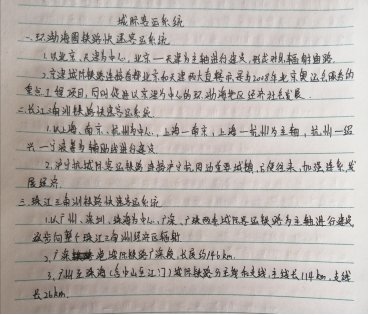 城际客运系统
一.环渤海圈铁路快速客运系统
1.以北京、天津为中心,北京—天津为主轴进行建设,形成对外辐射通路.
2.京津城际铁路连接首都北京和天津两大直辖市,是为2008年北京奥运会服务的
重点工程项目,同时促进以京津为中心的环渤海地区经济社会发展.
二.长江三角洲铁路快速客运系统
1.以上海、南京、杭州为中心,上海—南京,上海—杭州为主轴,杭州—绍
兴—宁波等为辅助线进行建设
2.沪宁杭城际客运铁路连接沪宁杭周边重要城镇,方便往来,加强连系,发
展经济.
三.珠江三角洲铁路快速客运系统
1.以广州、深圳、珠海为中心,广深、广珠两条城际客运铁路为主轴进行建设,
逐步向整个珠江三角洲经济区辐射
2.广深港城际铁路广深段,长度约146km.
3.广州至珠海(含中山至江门)城际铁路为主轴和支线,主线长114km,支线
长26km.